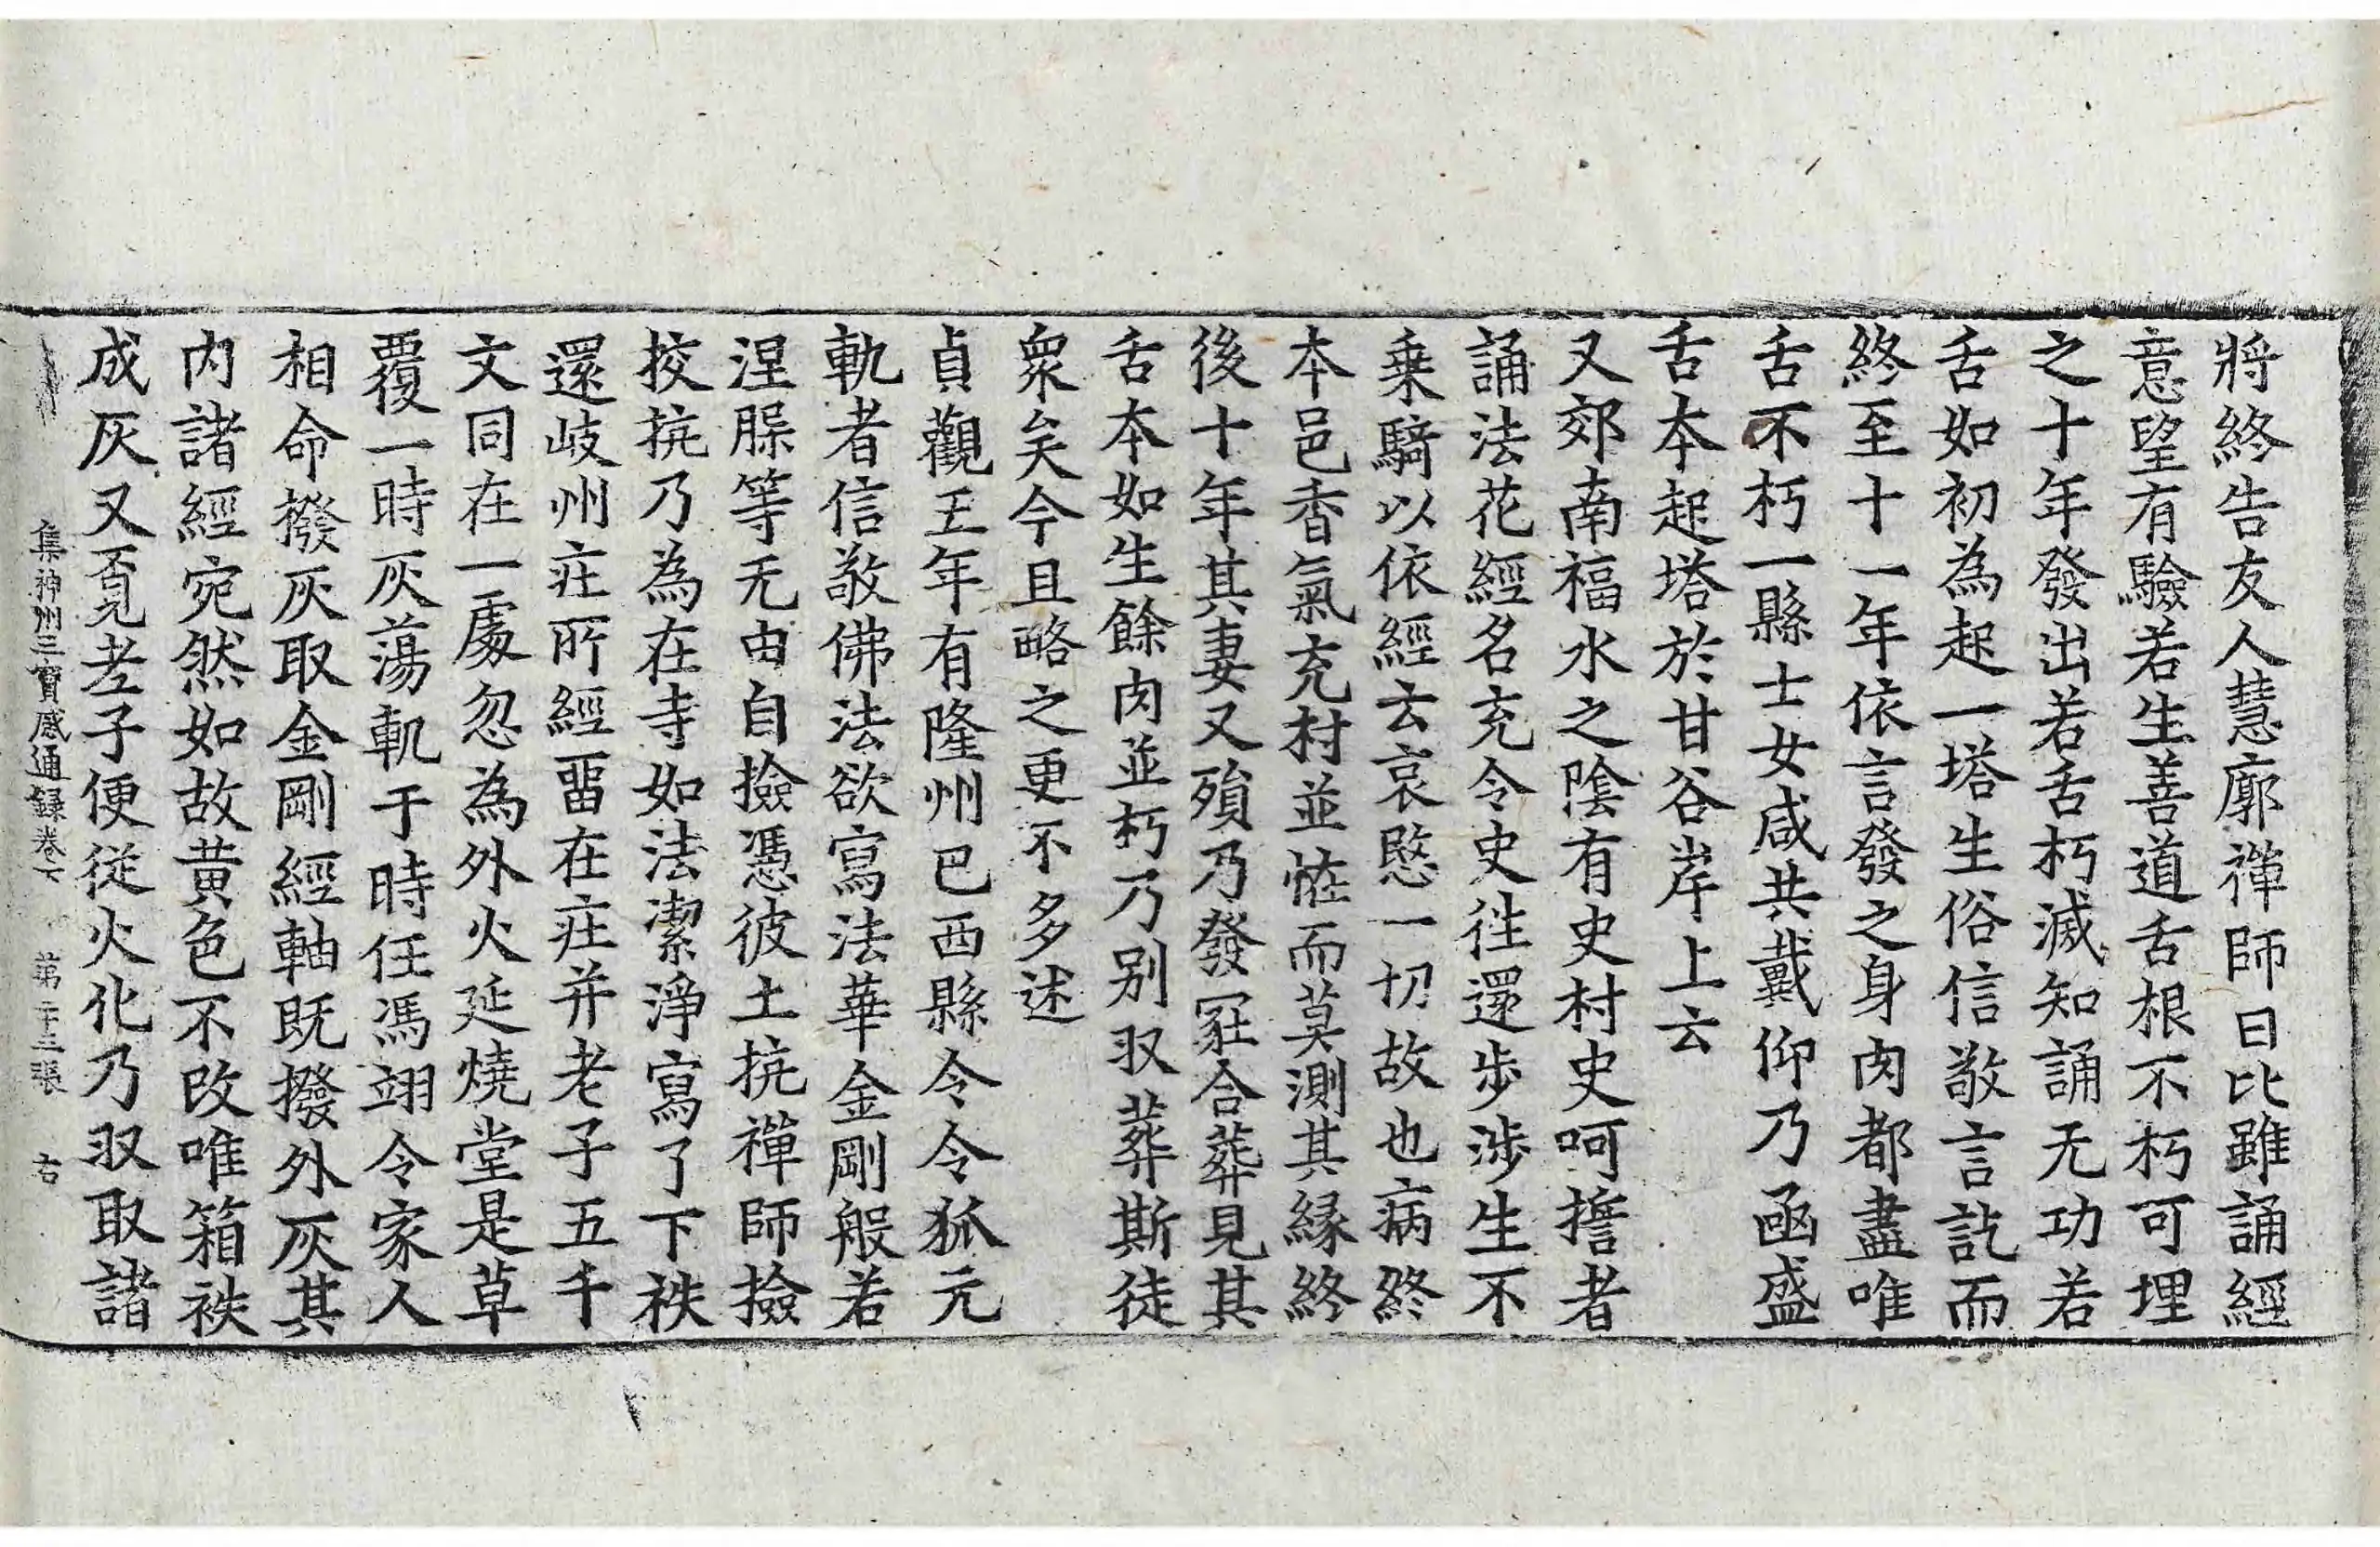 將終告友人慧廓禪師曰比雖誦經
意望有驗若生善道舌根不朽可埋
之十年發出若舌朽滅知誦无功若
舌如初為起一塔生俗信敬言訖而
終至十一年依言發之身肉都盡唯
舌不朽一縣士女咸共戴仰乃函盛
舌本起塔於甘谷岸上云
又郊南福水之陰有史村史呵擔者
誦法花經名充令史往還步涉生不
乗騎以依經云哀愍一切故也病終
本邑香氣充村並恠而莫測其縁終
後十年其妻又殞乃發冢合葬見其
舌本如生餘肉並朽乃別収葬斯徒
衆矣今且略之更不多述
貞觀五年有隆州巴西縣令令狐元
軌者信敬佛法欲寫法華金剛般若
涅槃等无由自撿憑彼土抗禪師撿
挍抗乃為在寺如法潔淨寫了下袟
還岐州庄所經留在庄并老子五千
文同在一處忽為外火延燒堂是草
覆一時灰蕩軌于時任馮翊令家人
相命撥灰取金剛經軸既撥外灰其
内諸經宛然如故黄色不改唯箱袟
成灰又覓老子便從火化乃収取諸
集神州三寶感通録卷下 第二十三張 右